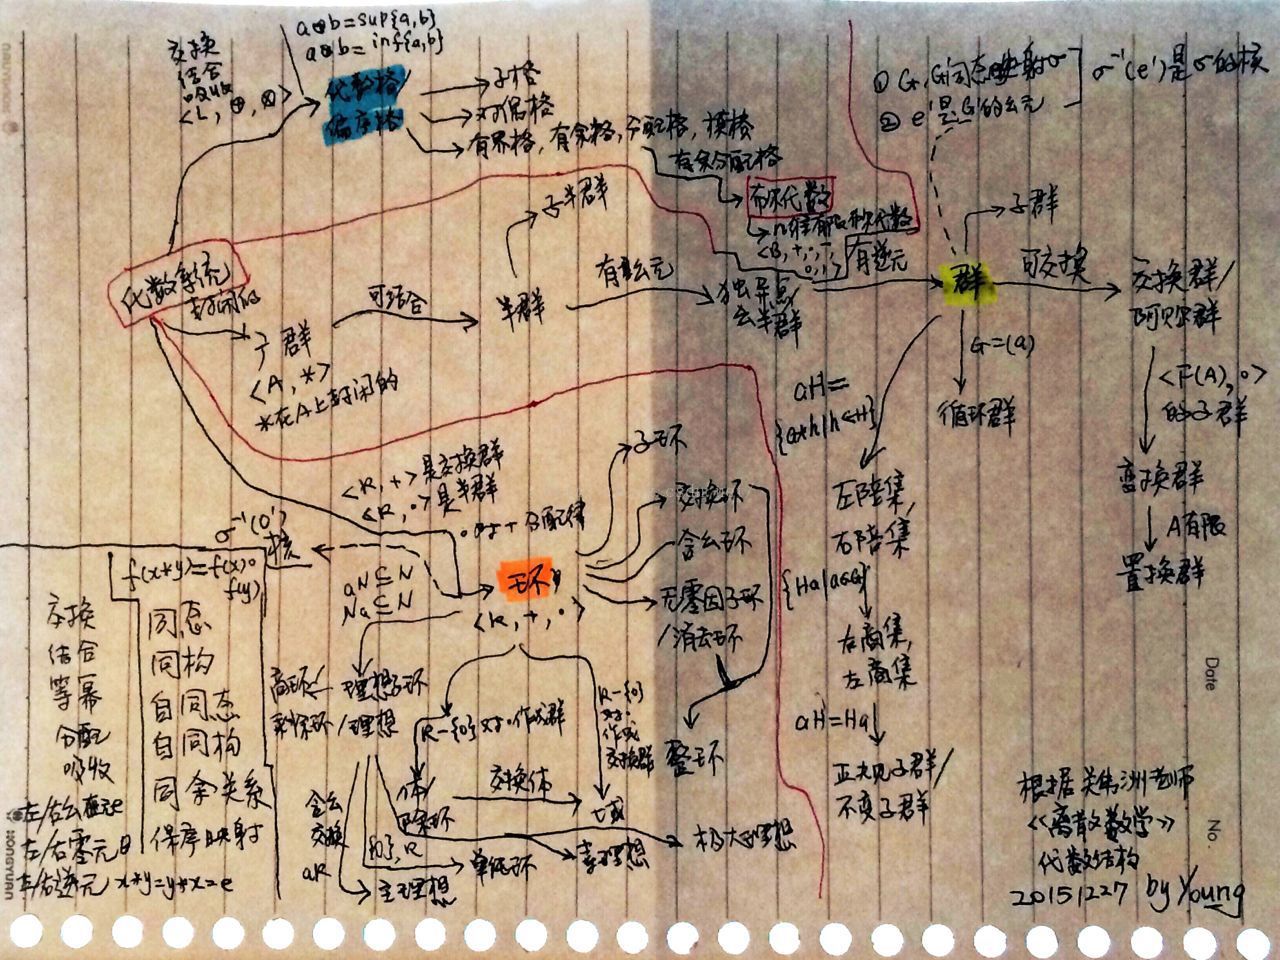 a⊕b=sup{a,b}
a⊗b=inf{a,b}
交换
结合
吸收
<L, ⊕, ⊗>
代数格/
偏序格
子格
对偶格
有界格, 有余格, 分配格, 模格
有余分配格
布尔代数
n维布尔代数
① G, G'同态映射σ
② e'是G'的幺元
σ⁻¹(e')是σ的核
代数系统
封闭的
广群
<A, *>
*在A上封闭的
可结合
半群
子半群
有幺元
独异点/
幺半群
有逆元
群
子群
可交换
交换群/
阿贝尔群
<F(A), ∘>
的子群
变换群
A有限
置换群
G=(a)
循环群
aH=
{a*h|h∈H}
左陪集,
右陪集
{Ha|a∈G}
右商集,
左商集
aH=Ha
正规子群/
不变子群
<R, +>是交换群
<R, ∘>是半群
∘对+分配律
环
<R, +, ∘>
子环
交换环
含幺环
无零因子环
/消去环
整环
σ⁻¹(0')
核
aN⊆N
Na⊆N
理想子环
/理想
商环/
剩余环
R-{0}对∘作成群
R-{0}
对∘
作成
交换群
体/
除环
交换体
域
含幺
交换
aR
主理想
{0}, R
单纯环
素理想
极大理想
f(x*y)=f(x)∘
f(y)
同态
同构
自同态
自同构
同余关系
保序映射
交换
结合
等幂
分配
吸收
左/右幺元 e
左/右零元 θ
左/右逆元 x*y=y*x=e
根据关伟洲老师
《离散数学》
代数结构
20151227 by Young
Date
No.
HONGYUAN